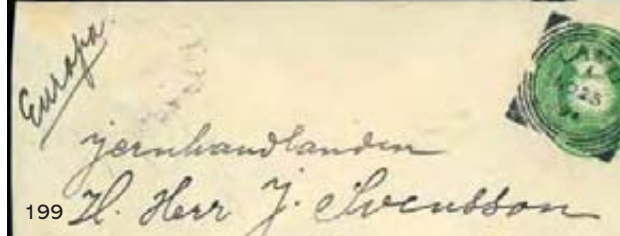 Europa.
Jernhandlanden
199 H. Herr J. Svensson
LAND
25